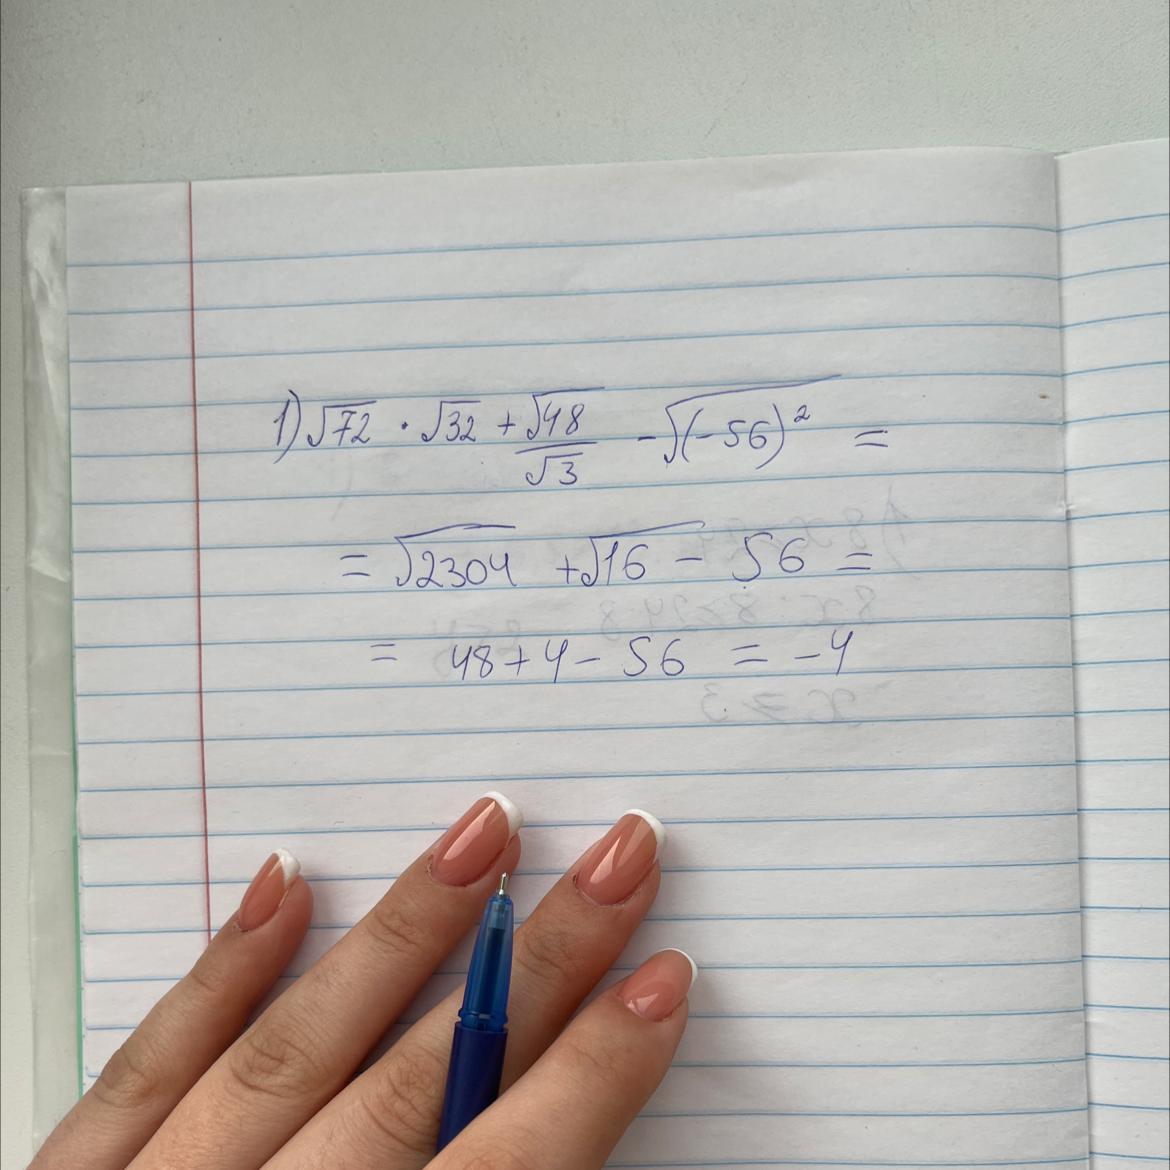 1) √72 · √32 + √48/√3 - √(-56)² =
= √2304 + √16 - 56 =
= 48 + 4 - 56 = -4